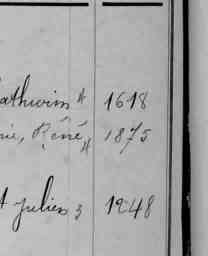 athurin 4 1618
rie, Réné 4 1875
t Julien 3 1248